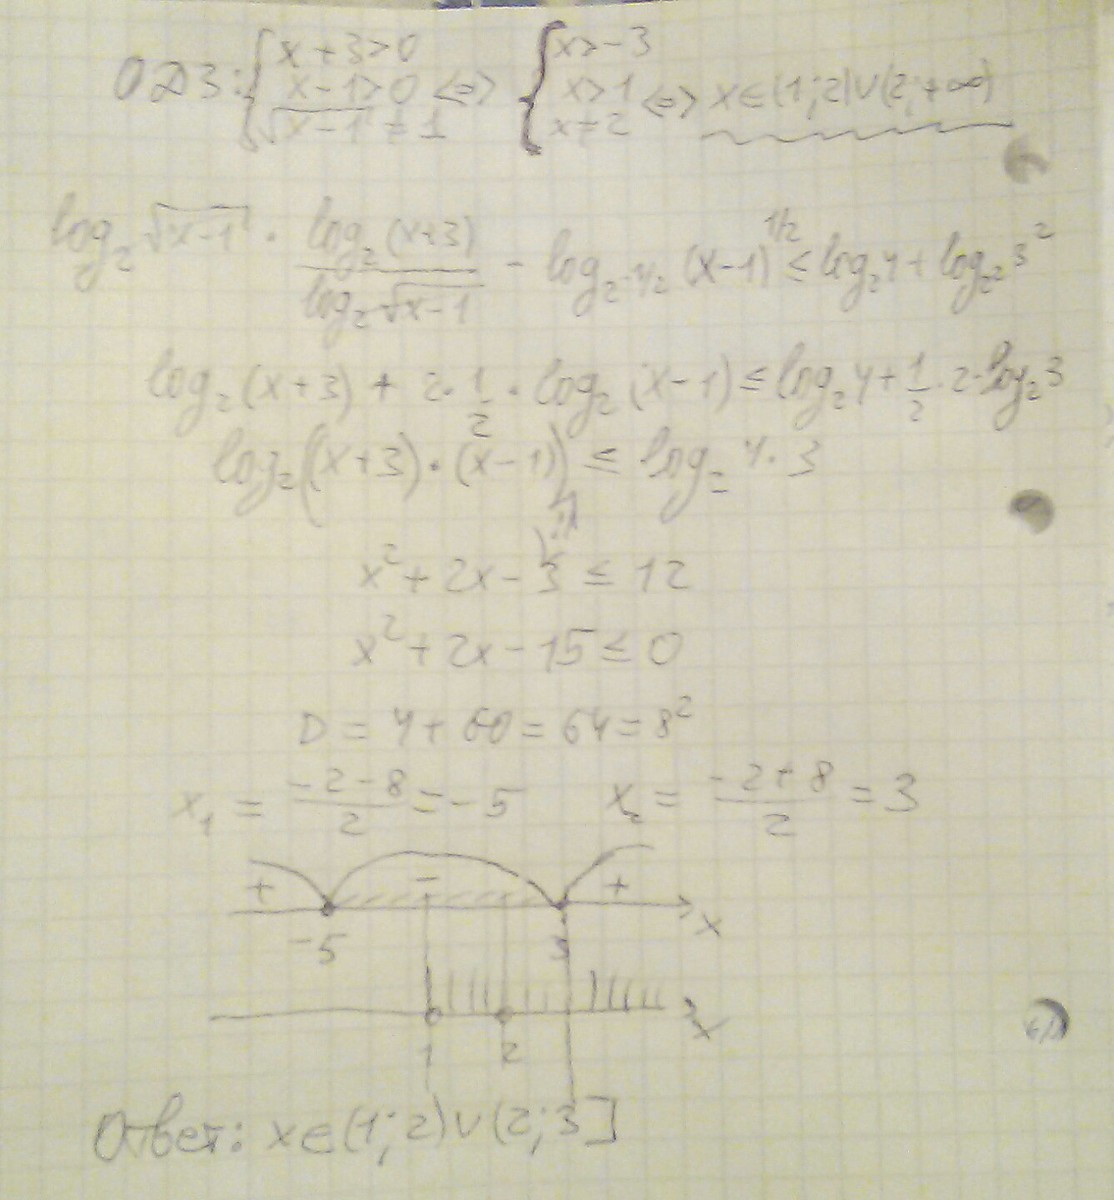 ОДЗ: { x + 3 > 0 { x > -3
x - 1 > 0 <=> x > 1 <=> x ∈ (1; 2) ∪ (2; +∞)
√x - 1 ≠ 1 x ≠ 2
log₂ √x-1 · log₂(x+3) / log₂ √x-1 - log₂-1/2 (x-1)^1/2 ≤ log₂ 4 + log₂2 3²
log₂ (x+3) + 2 · 1/2 · log₂ (x-1) ≤ log₂ 4 + 1/2 · 2 · log₂ 3
log₂((x+3) · (x-1)) ≤ log₂ 4 · 3
x² + 2x - 3 ≤ 12
x² + 2x - 15 ≤ 0
D = 4 + 60 = 64 = 8²
x₁ = -2-8 / 2 = -5 x₂ = -2+8 / 2 = 3
+ - +
-5 3 x
1 2 x
Ответ: x ∈ (1; 2) ∪ (2; 3]